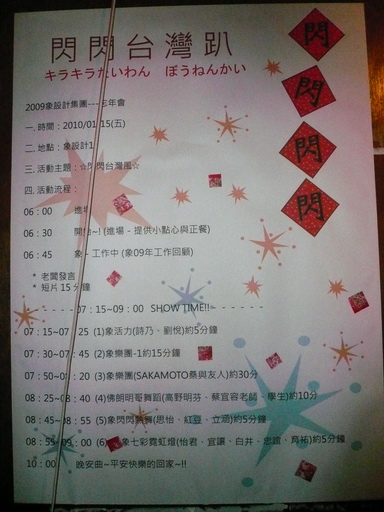 閃閃台灣趴
キラキラたいわん ぼうねんかい
閃
閃
閃
閃
2009象設計集團---忘年會
一. 時間：2010/01/15(五)
二. 地點：象設計1
三. 活動主題：☆閃閃台灣風☆
四. 活動流程：
06：00 進場
06：30 開動~! (進場－提供小點心與正餐)
06：45 象－工作中 (象09年工作回顧)
* 老闆發言
* 短片15分鐘
07：15~09：00 SHOW TIME!!
07：15~07：25 (1)象活力(詩乃、劉悅)約5分鐘
07：30~07：45 (2)象樂團-1約15分鐘
07：50~08：20 (3)象樂團(SAKAMOTO桑與友人)約30分
08：25~08：40 (4)佛朗明哥舞蹈(高野明芬、蔡宜容老師、學生)約10分
08：45~08：55 (5)象閃閃熱舞(思怡、紅豆、立涵)約5分鐘
08：55~09：00 (6) 象七彩霓虹燈(怡君、宜讓、白井、忠誼、育祐)約5分鐘
10：00 晚安曲~平安快樂的回家~!!